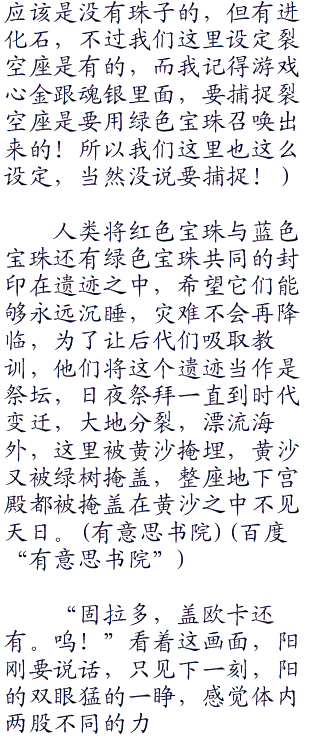 应该是没有珠子的，但有进
化石，不过我们这里设定裂
空座是有的，而我记得游戏
心金跟魂银里面，要捕捉裂
空座是要用绿色宝珠召唤出
来的！所以我们这里也这么
设定，当然没说要捕捉！）
人类将红色宝珠与蓝色
宝珠还有绿色宝珠共同的封
印在遗迹之中，希望它们能
够永远沉睡，灾难不会再降
临，为了让后代们吸取教
训，他们将这个遗迹当作是
祭坛，日夜祭拜一直到时代
变迁，大地分裂，漂流海
外，这里被黄沙掩埋，黄沙
又被绿树掩盖，整座地下宫
殿都被掩盖在黄沙之中不见
天日。(有意思书院)(百度
“有意思书院”)
“固拉多，盖欧卡还
有。呜！”看着这画面，阳
刚要说话，只见下一刻，阳
的双眼猛的一睁，感觉体内
两股不同的力